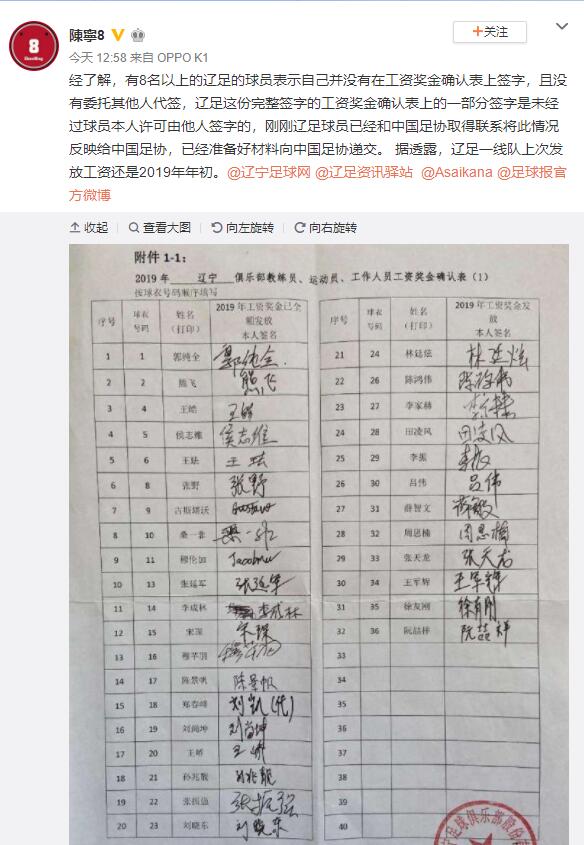 陳寧8
+关注
今天 12:58 来自 OPPO K1
经了解，有8名以上的辽足的球员表示自己并没有在工资奖金确认表上签字，且没
有委托其他人代签，辽足这份完整签字的工资奖金确认表上的一部分签字是未经
过球员本人许可由他人签字的，刚刚辽足球员已经和中国足协取得联系将此情况
反映给中国足协，已经准备好材料向中国足协递交。 据透露，辽足一线队上次发
放工资还是2019年年初。@辽宁足球网 @辽足资讯驿站 @Asaikana @足球报官
方微博
收起 查看大图 向左旋转 向右旋转
附件 1-1：
2019 年 辽宁 俱乐部教练员、运动员、工作人员工资奖金确认表（1）
按球衣号码顺序填写
序号 球衣号码 姓名（打印） 2019 年工资奖金已全额发放 本人签名
1 1 郭纯全 郭纯全
2 2 熊飞 熊飞
3 4 王皓 王皓
4 5 侯志雄 侯志雄
5 6 王珐 王珐
6 8 张野 张野
7 9 古斯塔沃 Gustavo
8 10 桑一非 桑一非
9 11 穆伦加
10 13 张延军 张延军
11 14 李成林 李成林
12 15 宋琛 宋琛
13 16
14 17 陈景帆 陈景帆
15 18 郑春峰 刘凯(代)
16 19 刘尚坤 刘尚坤
17 20 王娇
18 21 孙兆靓 孙兆靓
19 22 张振强 张振强
20 23 刘晓东 刘晓东
序号 球衣号码 姓名（打印） 2019 年工资奖金发放 本人签名
21 24 林廷炫 林廷炫
22 26 陈鸿伟
23 27 李家赫
24 28 田凌风 田凌风
25 29 李振 李振
26 30 吕伟 吕伟
27 31 薛智文
28 32 周思楠 周思楠
29 33 张天龙 张天龙
30 34 王军辉 王军辉
31 35 徐友刚 徐有刚
32 36 阮喆祥 阮喆祥
33
34
35
36
37
38
39
40
足球俱乐部股份